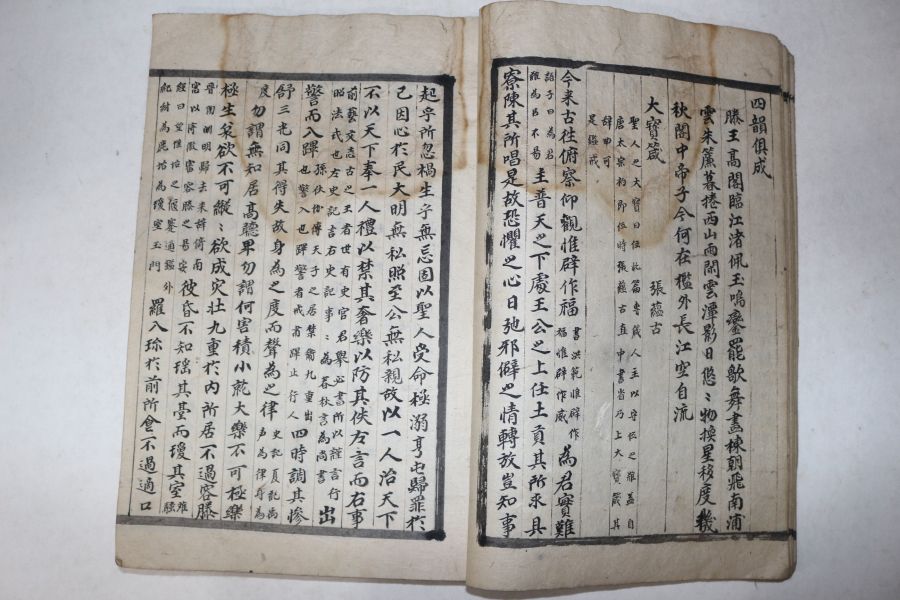 四韻俱成
滕王高閣臨江渚佩玉鳴鑾罷歌舞畫棟朝飛南浦
雲朱簾暮捲西山雨閑雲潭影日悠〻物換星移度幾
秋閣中帝子今何在檻外長江空自流
大寶箴 張蘊古
聖人之大寶曰位此篇專戒人主以守位之難盖自
唐太宗初即位時張蘊古直中書省乃上大寶箴其
辞
是箴戒
今来古往俯察仰觀惟辟作福 書洪範惟辟作福惟辟作威 為君實難
語子曰為君難為臣不易 主普天之下處王公之上任土貢其所求具
寮陳其所唱是故恐懼之心日弛邪僻之情轉放豈知事
起乎所忽禍生乎無忌固以聖人受命極溺亨屯歸罪於
己因心於民大明無私照至公無私親故以一人治天下
不以天下奉一人禮以禁其奢樂以防其佚左言而右事
前藝文志古之王者世有史官君舉必書所以謹言行昭法式也左史記言右史記事〻為春秋言為尚書 出
警而入蹕 孫伏伽傳天子之居禁衛九重出也警入也蹕警者戒肅蹕止行人 四時調其慘
舒三光同其得失故身為之度而聲為之律 史記夏紀禹声為律身為
度 勿謂無知居高聽卑勿謂何害積小就大樂不可極樂
極生哀欲不可縱〻欲成灾壯九重於内所居不過容膝
晉陶淵明歸去来辞倚南窓以寄傲審容膝之易安 彼昏不知瑤其臺而瓊其室
紀紂為鹿 為瓊室玉門 羅八珍於前所食不過適口